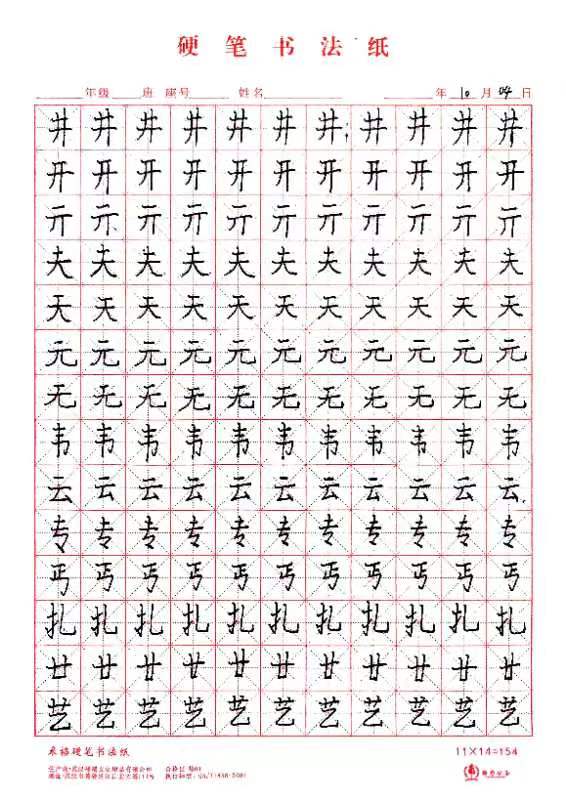 硬笔书法纸
年级 班 座号 姓名 年 10 月 04 日
井井井井井井井井井井井
开开开开开开开开开开开
亓亓亓亓亓亓亓亓亓亓亓
夫夫夫夫夫夫夫夫夫夫夫
天天天天天天天天天天天
元元元元元元元元元元元
无无无无无无无无无无无
韦韦韦韦韦韦韦韦韦韦韦
云云云云云云云云云云云
专专专专专专专专专专专
丐丐丐丐丐丐丐丐丐丐丐
扎扎扎扎扎扎扎扎扎扎扎
廿廿廿廿廿廿廿廿廿廿廿
艺艺艺艺艺艺艺艺艺艺艺
米格硬笔书法纸
11×14=154